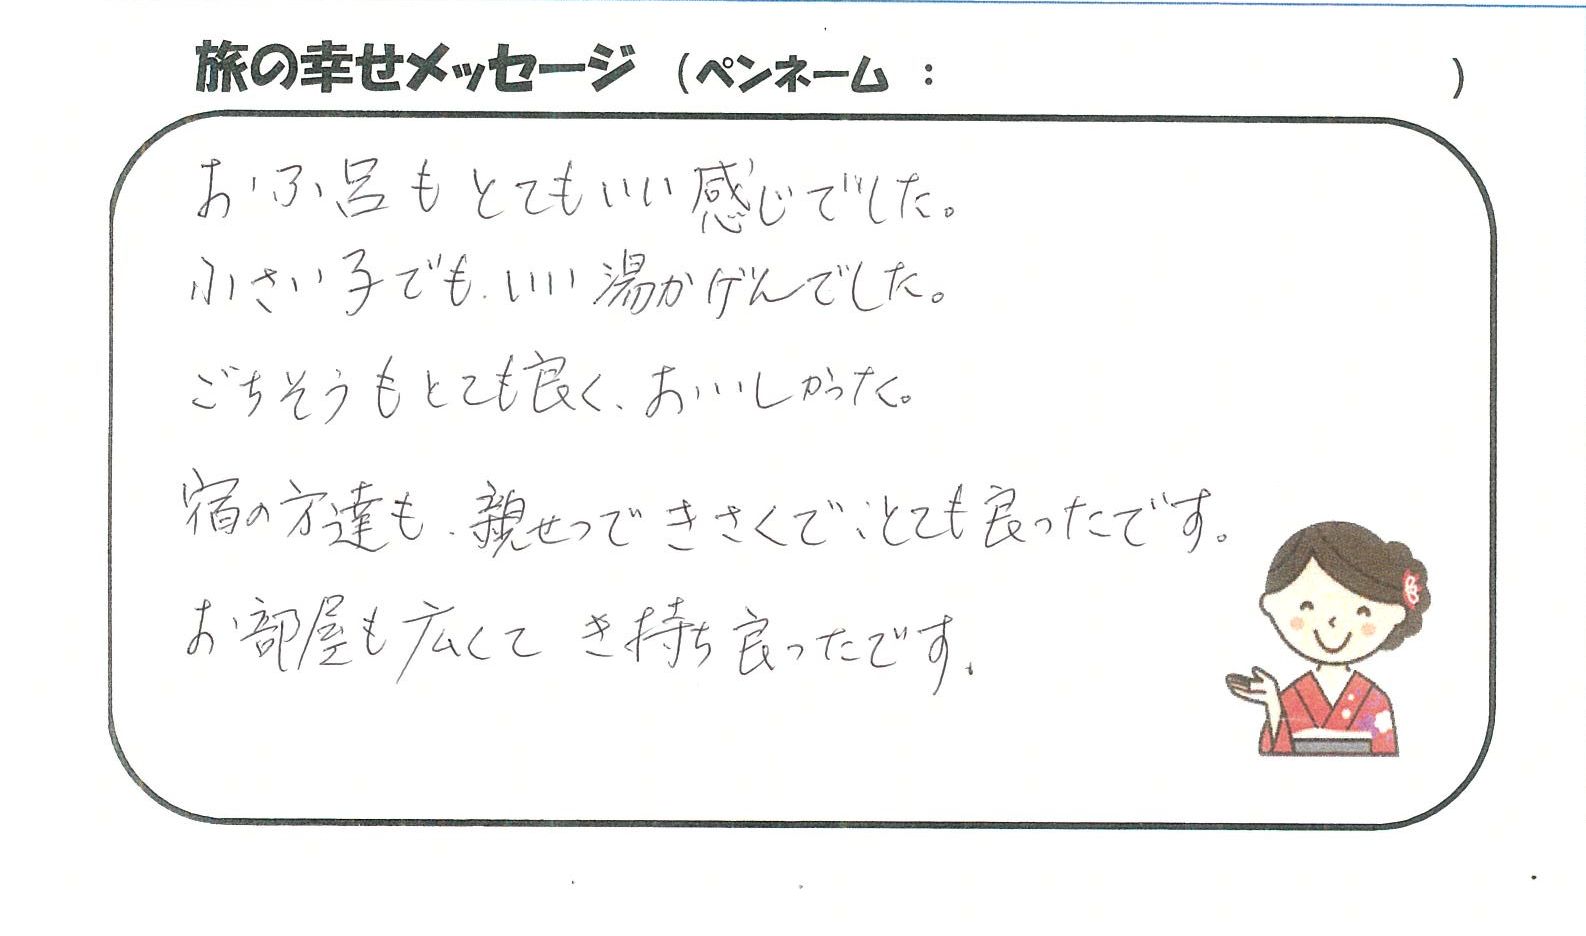 旅の幸せメッセージ (ペンネーム : )
おふ呂もとてもいい感じでした。
小さい子でも、いい湯かげんでした。
ごちそうもとても良く、おいしかった。
宿の方達も、親せつできさくで、とても良ったです。
お部屋も広くて き持ち良ったです、